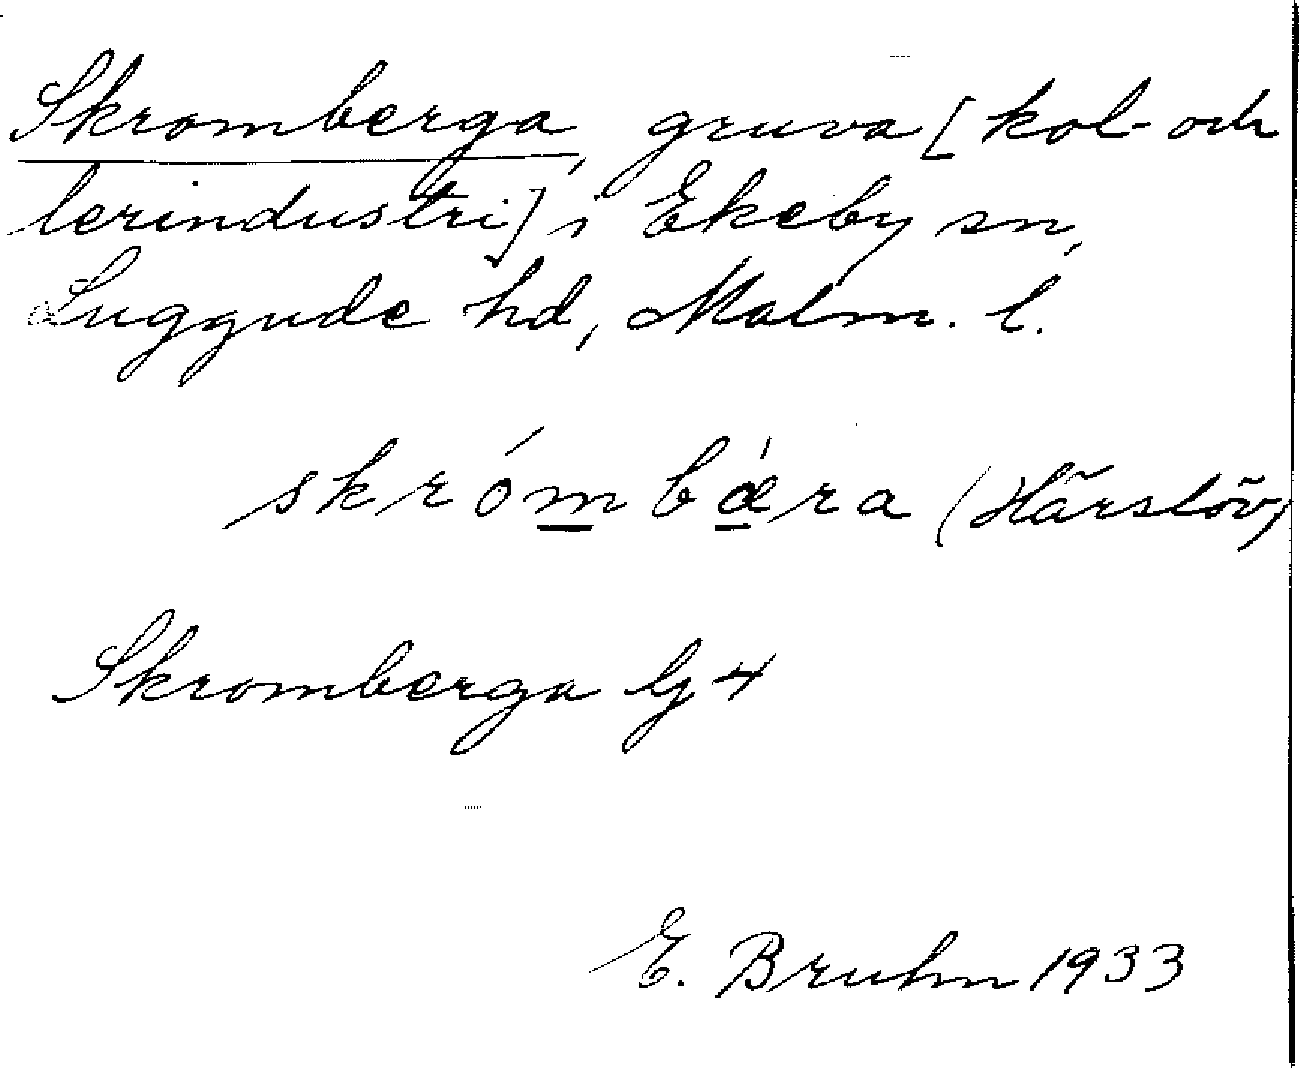 Skromberga, gruva [kol- och
lerindustri] i Ekeby sn,
Luggude hd, Malm. l.
skrómbæ̀ra (Härslöv)
Skromberga G 4
E. Bruhn 1933